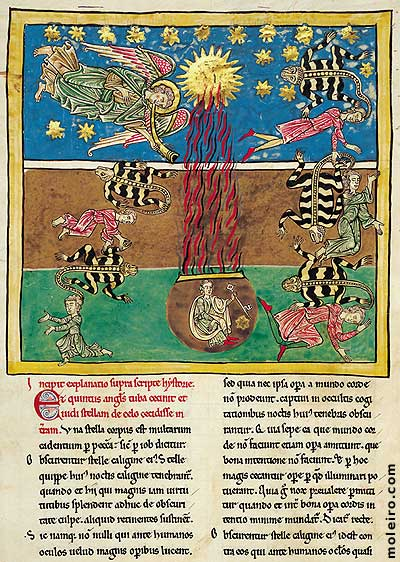 Incipit explanatio supra scripte hystorie.
Et quintus angls tuba cecinit et
uidi stellam de celo cecidisse in
terram. Una stella corpus est multarum
cadentium p pecca
Obscurentur stelle caligine ei. Stelle
quipe noctis caligine
quando et hii qui magnis iam uirtu
tibus splendent adhuc de obscuri
tate culpe. aliquid retinentes sustinent.
Sic namq. non nulli qui ante humanos
oculos uelud magnis operibus lucent.
sed quia nec ipsa opa a mundo corde
non prodeunt. captiui in occultis cogi
tationibus noctis huius tenebras obscu
rantur. Qui sepe ea que mundo cor
de non faciunt etiam opa amittunt. que
bona intentione non faciunt. Et p hoc
magis
erant. Quia nox preualere pmitti
tur quando et inter bona opa cordis in
tentio minime mundatur. Dicat recte.
Obscurentur stelle caligine ei idest con
tra eos qui ante humanos oculos quasi
moleiro.com